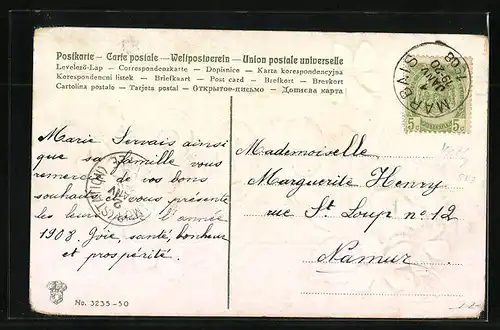 Postkarte – Carte postale – Weltpostverein – Union postale universelle
Levelező-Lap — Correspondenzkarte — Dopisnice — Karta korespondencyjna
Korespondencní lístek — Briefkaart — Post card — Brefkort — Brevkort
Cartolina postale — Tarjeta postal — Открытое-письмо — Дописна карта
MARBAIS
JANV
7-08
5c 5c
Marie Servais ainsi
que sa famille vous
remercient de vos bons
souhaits et vous présente
les leurs pour l'année
1908. Joie, santé, bonheur
et prospérité.
JANV
Mademoiselle
Marguerite Henry
rue St Loup no 12
Namur.
No. 3235-50